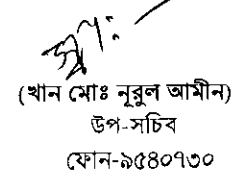 স্বাঃ-
(খান মোঃ নূরুল আমীন)
উপ-সচিব
ফোন-৯৫৪০৭৩০